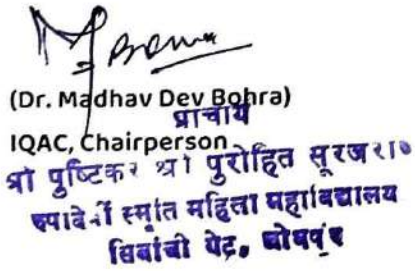 (Dr. Madhav Dev Bohra)
प्राचार्य
IQAC, Chairperson
श्री पुष्टिकर श्री पुरोहित सूरजरा०
स्मृति महिला महाविद्यालय
सिवांची गेट, जोधपुर